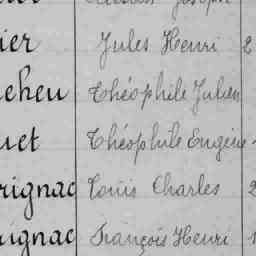 Joseph
ier Jules Henri 2
cheu Théophile Julien
uet Théophile Eugène
rignac Louis Charles 2
ignac François Henri 1